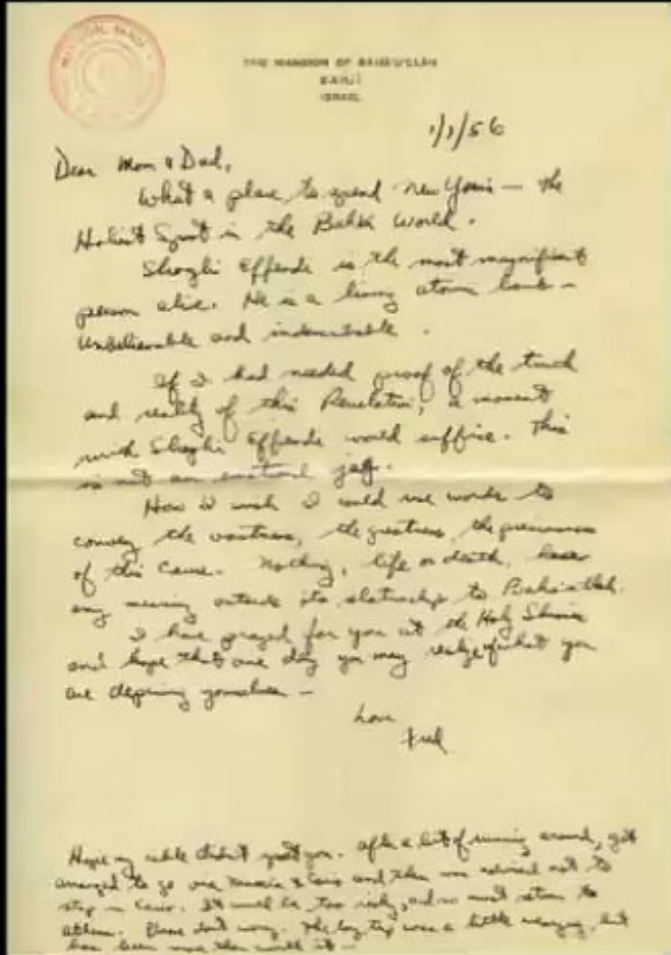 THE MANSION OF BAHA'U'LLAH
BAHJI
ISRAEL
1/1/56
Dear Mom & Dad,
What a place to spend New Years — the
Holiest Spot in the Bahá'í World.
Shoghi Effendi is the most magnificent
person alive. He is a living atom bomb —
Unbelievable and indescribable.
If I had needed proof of the truth
and reality of this Revelation, a moment
with Shoghi Effendi would suffice. This
is not an emotional jag.
How I wish I could use words to
convey the vastness, the greatness, the preciousness
of this Cause. Nothing, life or death, has
any meaning outside its relationship to Baha'u'llah.
I have prayed for you at the Holy Shrine
and hope that one day you may realize of what you
are depriving yourselves —
Love
Fred
Hope my cable didn't upset you. After a bit of running around, got
arranged to go via & Cairo and then was advised not to
stop in Cairo. It would be too risky, and so must return to
Athens. Please don't worry. The long trip was a little wearying, but
has been more than worth it —